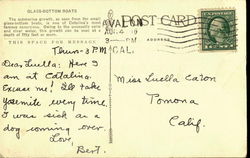 GLASS-BOTTOM BOATS
The submarine growth, as seen from the small
glass-bottom boats, is one of Catalina's most
famous
and clear water, this growth can be seen at a
depth of fifty feet or more.
THIS SPACE FOR MESSAGE
POST CARD
AVALON
AUG 4
3-PM
CAL.
Thurs - 3 P.M
Dear Luella: Here I
am at Catalina.
Excuse me! I'll take
Yosemite every time.
I was sick as a
dog coming over
Love,
Bert.
Miss Luella Caton
Pomona
Calif.